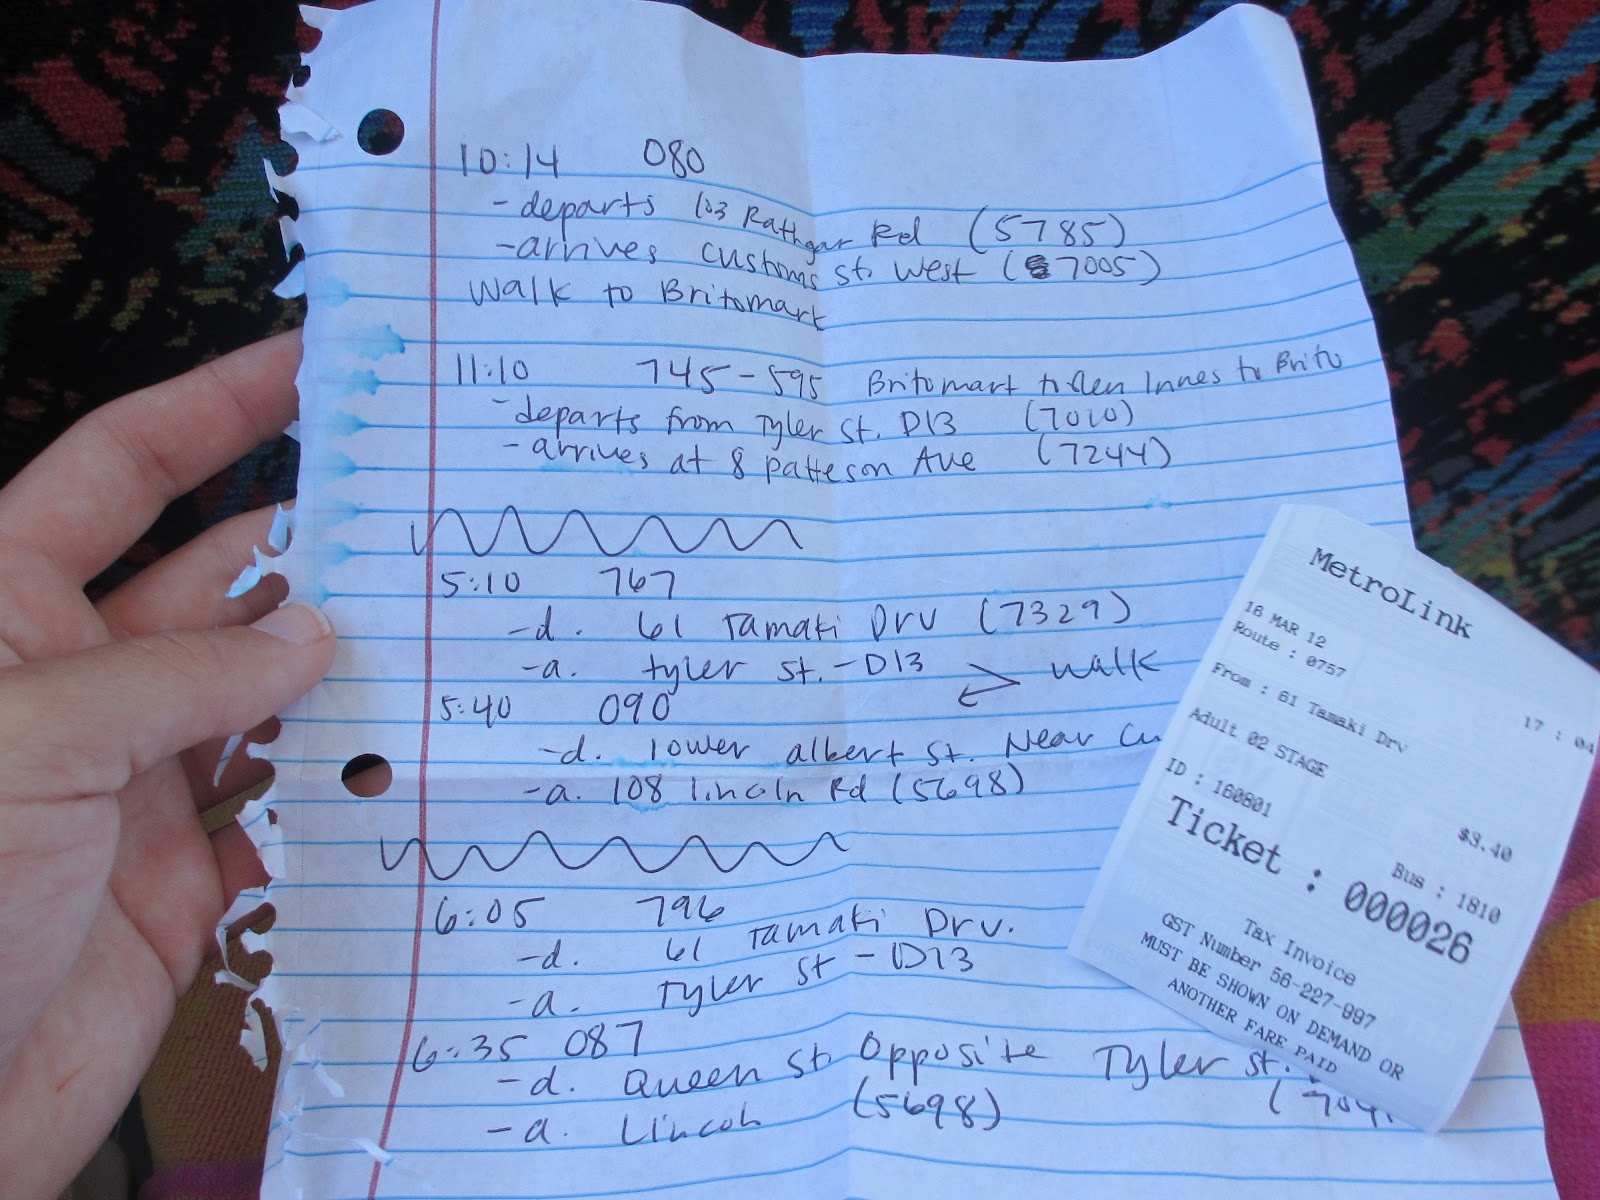 10:14 080
- departs 103 Rathgar Rd (5785)
- arrives Customs st. West (7005)
Walk to Britomart
11:10 745-595 Britomart to Glen Innes to Brito
- departs from Tyler St. D13 (7010)
- arrives at 8 Patteson Ave (7244)
5:10 767
-d. 61 Tamaki Drv (7329)
-a. Tyler st. - D13
walk
5:40 090
-d. lower albert st. Near Cu
-a. 108 lincoln Rd (5698)
6:05 796
-d. 61 Tamaki Drv.
-a. Tyler St - D13
6:35 087
-d. Queen St. Opposite Tyler st.
-a. Lincoln (5698)
MetroLink
16 MAR 12 17:04
Route : 0757
From : 61 Tamaki Drv
Adult 02 STAGE $3.40
ID : 160801 Bus : 1810
Ticket : 000026
Tax Invoice
GST Number 56-227-997
MUST BE SHOWN ON DEMAND OR
ANOTHER FARE PAID